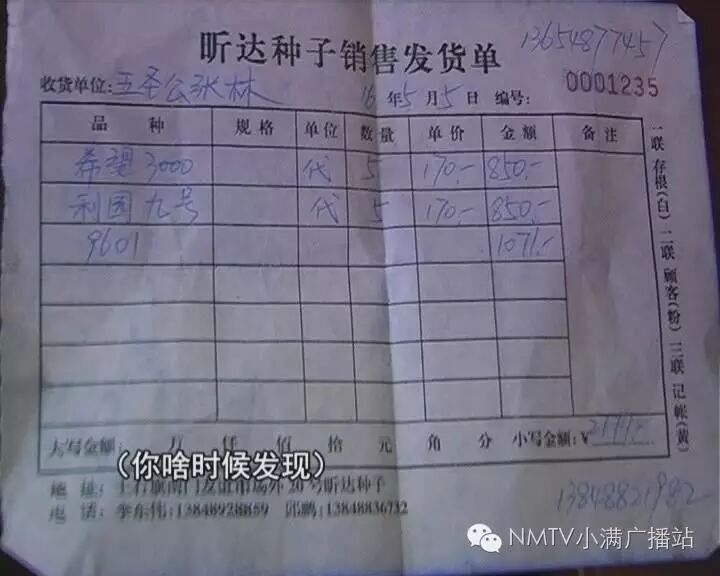 昕达种子销售发货单
13654877457
收货单位:五圣公张林 16年5月5日 编号: 0001235
品种 规格 单位 数量 单价 金额 备注
希望3000 代 5 170.- 850.-
利园九号 代 5 170.- 850.-
9601 1071.-
一联存根(白) 二联顾客(粉) 三联记帐(黄)
大写金额: 万 仟 佰 拾 元 角 分 小写金额:¥
(你啥时候发现)
地址: 市场外20号昕达种子
13848821982
电话: 李东伟:13848928859 邱鹏:13848836732
NMTV小满广播站